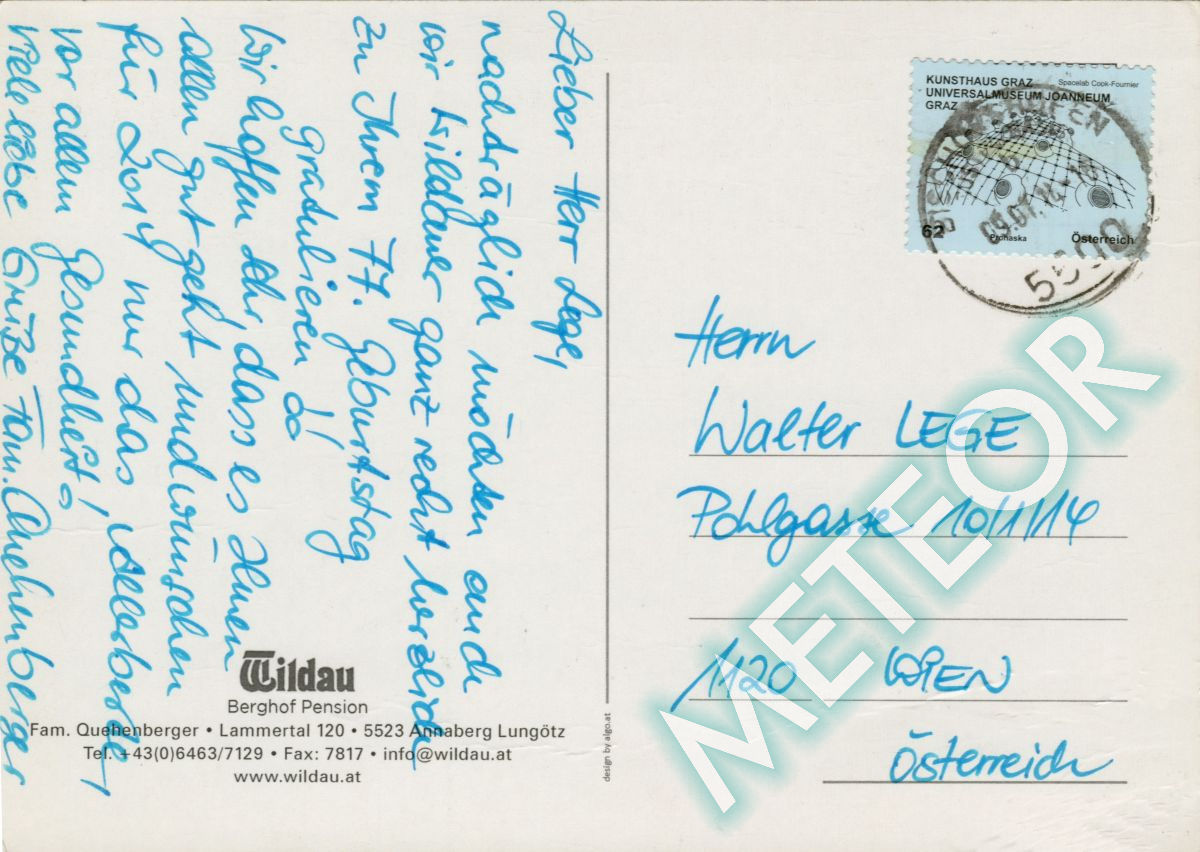 Lieber Herr Lege,
nachträglich möchten auch
wir Wildauer ganz recht herzlich
zu Ihrem 77. Geburtstag
Gratulieren!
Wir hoffen sehr, dass es Ihnen
allen gut geht und wünschen
für 2014 nur das Allerbeste,
vor allem Gesundheit!
Viele liebe Grüße Fam. Quehenberger
Wildau
Berghof Pension
Fam. Quehenberger • Lammertal 120 • 5523 Annaberg Lungötz
Tel. +43(0)6463/7129 • Fax: 7817 • info@wildau.at
www.wildau.at
design by algo.at
KUNSTHAUS GRAZ
Spacelab Cook-Fournier
UNIVERSALMUSEUM JOANNEUM
GRAZ
62
Prohaska
Österreich
BISCHOFSHOFEN
09.01.14
5500
Herrn
Walter LEGE
Pohlgasse 10/1/14
1120 WIEN
Österreich
METEOR